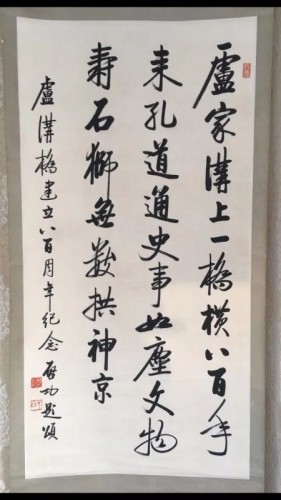 盧家溝上一橋橫八百年
來孔道通史事如塵文物
壽石獅無數拱神京
盧溝橋建立八百周年紀念 啓功題頌